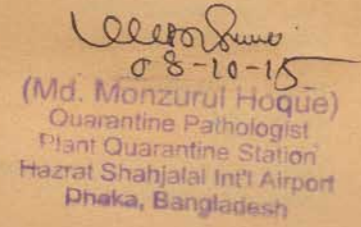 08-10-15
(Md. Monzurul Hoque)
Quarantine Pathologist
Plant Quarantine Station
Hazrat Shahjalal Int'l Airport
Dhaka, Bangladesh